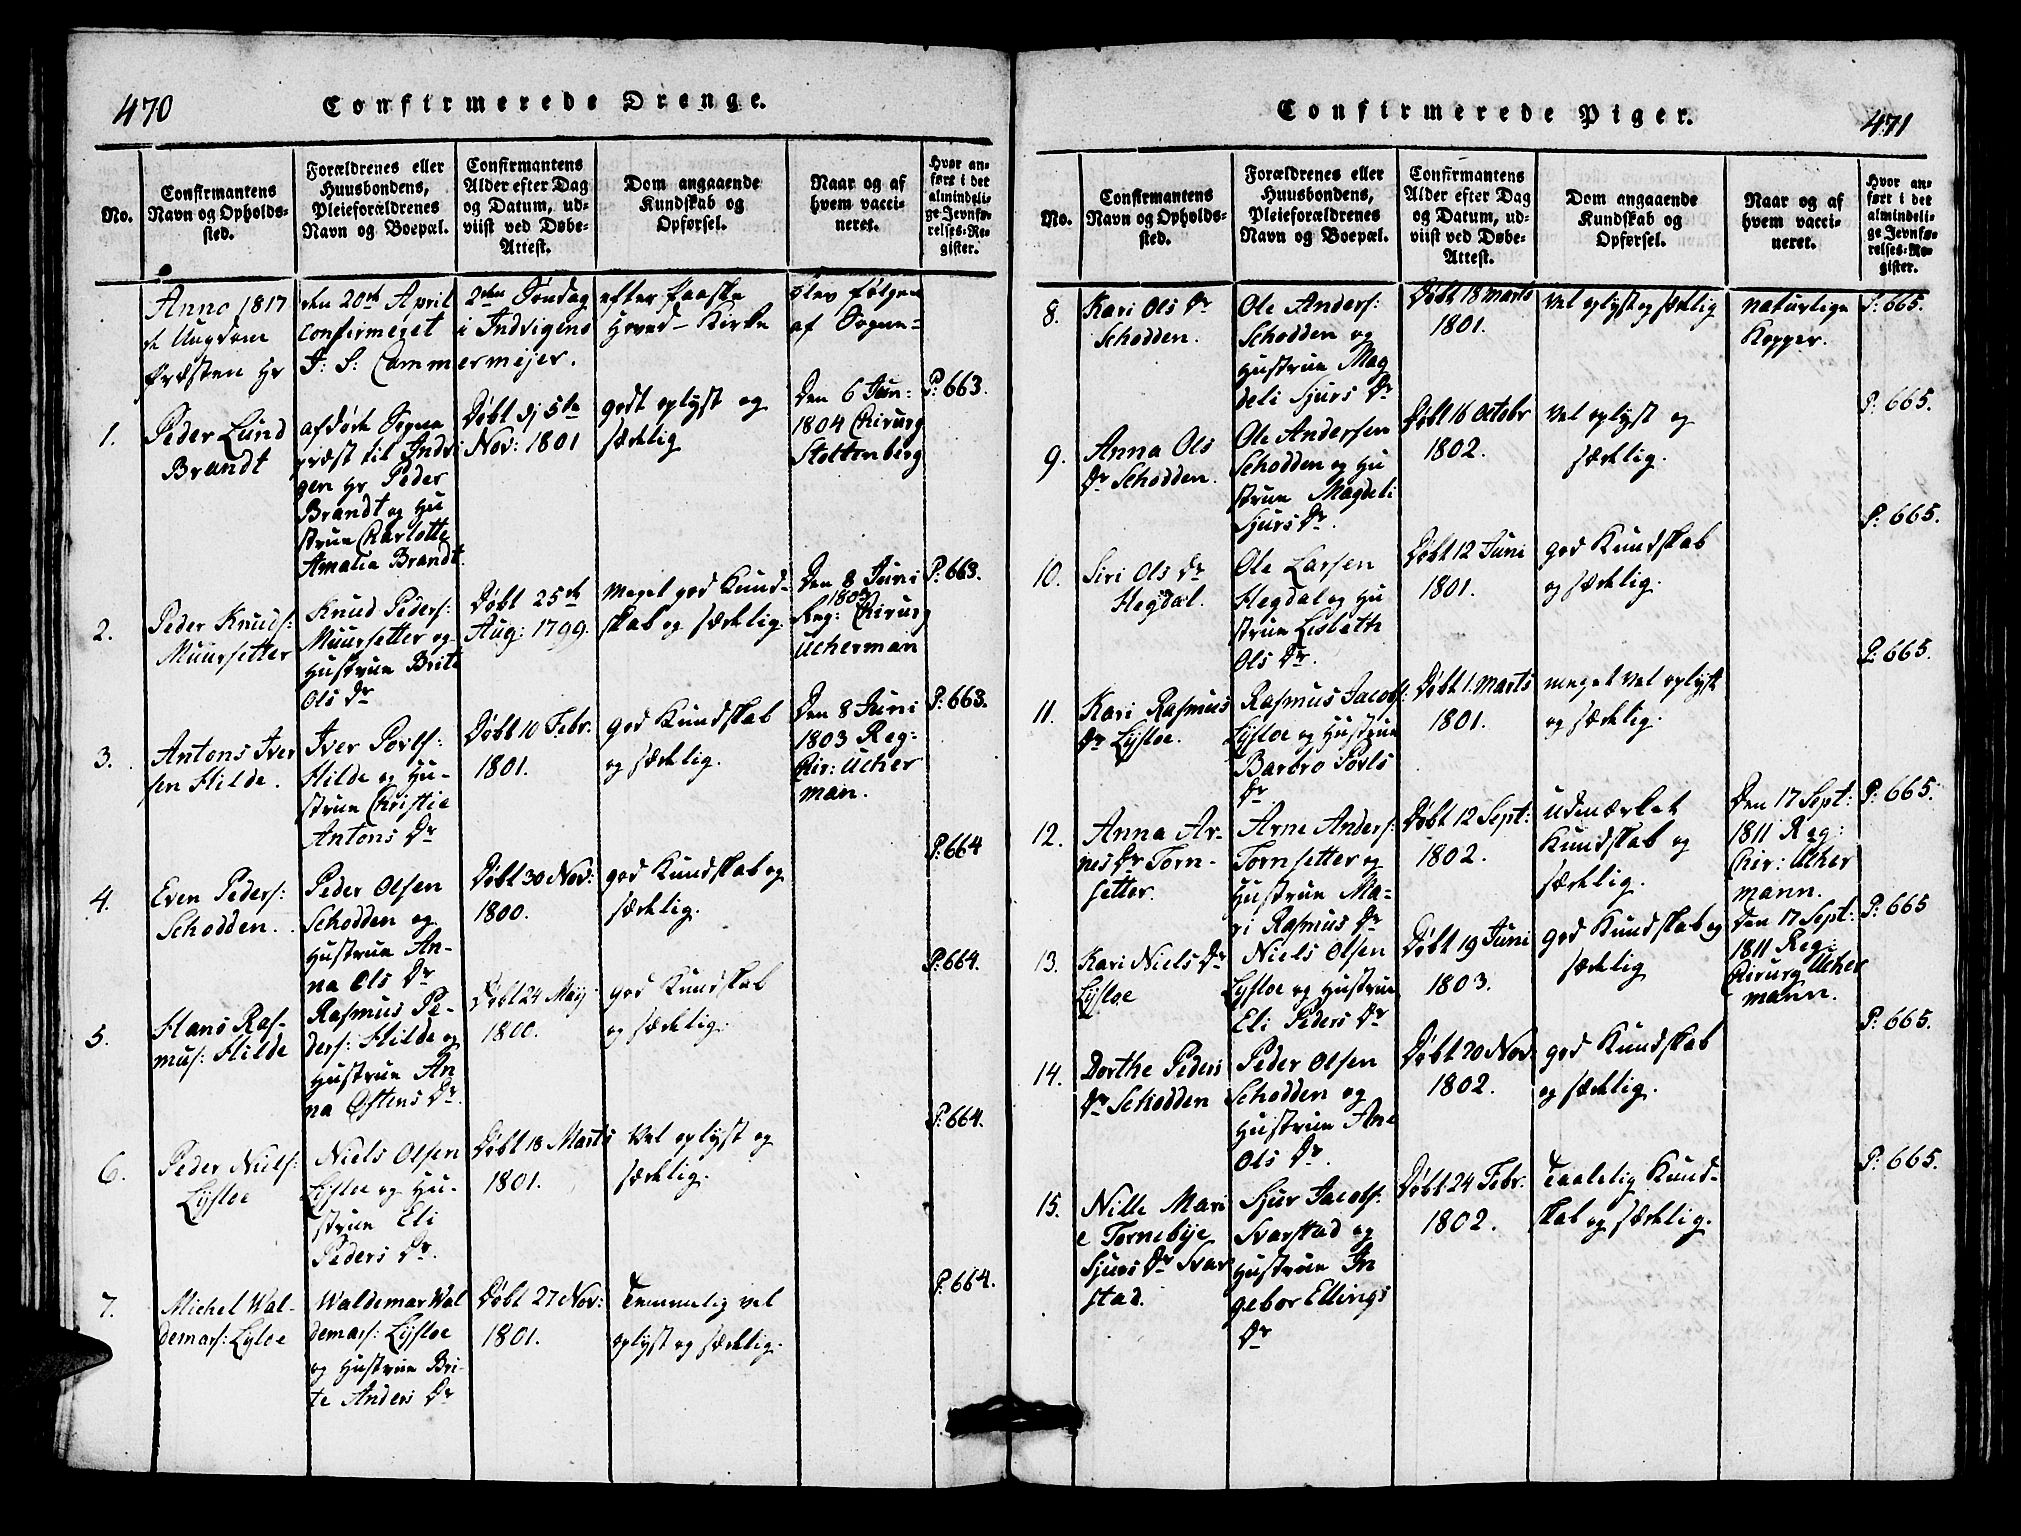 470
Confirmerede Drenge.
No.
Confirmantens
Navn og Opholds-
sted.
Forældrenes eller
Huusbondens,
Pleieforældrenes
Navn og Boepæl.
Confirmantens
Alder efter Dag
og Datum, ud-
viist ved Døbe-
Attest.
Dom angaaende
Kundskab og
Opførsel.
Naar og af
hvem vacci-
neret.
Hvor an-
ført i det
almindeli-
ge Jevnfø-
relses-Re-
gister.
Anno 1817 den 20de April 2den Søndag efter Paaske blev følgen
de Ungdom confirmeret i Indvigens Hoved-Kirke af Sogne-
Præsten Hr J: S: Cammermeijer.
1.
Peder Lund
Brandt
afdøde Sogne
præst til Indvi
gen Hr Peder
Brandt og Hu
strue Charlotte
Amalia Brandt.
Døbt dj 5te
Nov: 1801
godt oplyst og
sædelig
Den 6 Jun:
1804 Chirurg
Stoltenberg
P: 663.
2.
Peder Knuds:
Muursetter
Knud Peders:
Muursetter og
Hustrue Brite
Ols Dr
Døbt 25de
Aug: 1799.
Meget god Kund-
skab og sædelig.
Den 8 Juni
1803
Reg: Chirurg
Ucherman
P: 663.
3.
Antons Iver
sen Hilde.
Iver Povls:
Hilde og Hu-
strue Christie
Antons Dr
Døbt 10 Febr.
1801.
god Kundskab
og sædelig.
Den 8 Juni
1803 Reg:
Chir: Ucher
man.
P: 663.
4.
Even Peders:
Schodden.
Peder Olsen
Schodden og
Hustrue An-
na Ols Dr
Døbt 30 Nov:
1800.
god Kundskab og
sædelig.
P: 664
5.
Hans Ras-
mus: Hilde
Rasmus Pe-
ders: Hilde og
Hustrue An
na Ostens Dr.
Døbt 24 Maij
1800.
god Kundskab
og sædelig.
P: 664.
6.
Peder Niels:
Lysloe
Niels Olsen
Lysloe og Hu-
strue Eli
Peders Dr.
Døbt 18 Marts
1801.
Vel oplyst og
sædelig.
P: 664.
7.
Michel Wal-
demars: Lysloe
Waldemar Wal
demars: Lysloe
og Hustrue Bri-
te Anders Dr
Døbt 27 Nov:
1801.
Temmelig vel
oplyst og sædelig.
P: 664.
471
Confirmerede Piger.
No.
Confirmantens
Navn og Opholds-
sted.
Forældrenes eller
Huusbondens,
Pleieforældrenes
Navn og Boepæl.
Confirmantens
Alder efter Dag
og Datum, ud-
viist ved Døbe-
Attest.
Dom angaaende
Kundskab og
Opførsel.
Naar og af
hvem vacci-
neret.
Hvor an-
ført i det
almindeli-
ge Jevnfø-
relses-Re-
gister.
8.
Kari Ols Dr
Schodden.
Ole Anders:
Schodden og
Hustrue Mag
deli Sjurs Dr
Døbt 18 Marts
1801.
Vel oplyst og sædelig
naturlige
Kopper.
P: 665.
9.
Anna Ols
Dr Schodden.
Ole Andersen
Schodden og Hu
strue Magdeli
Sjurs Dr.
Døbt 16 Octobr
1802.
Vel oplyst og
sædelig.
P: 665.
10.
Siri Ols Dr
Hegdal.
Ole Larsen
Hegdal og Hu
strue Lisbeth
Ols Dr.
Døbt 12 Juni
1801.
god Kundskab
og sædelig.
P: 665.
11.
Kari Rasmus
Dr Lysloe.
Rasmus Jacobs:
Lysloe og Hustrue
Barbro Povls
Dr
Døbt 1. Marts
1801.
meget vel oplyst
og sædelig.
P: 665.
12.
Anna Ar-
nes Dr Torn-
setter.
Arne Anders:
Tornsetter og
Hustrue Ma-
ri Rasmus Dr
Døbt 12 Sept:
1802.
udmærket
Kundskab og
sædelig.
Den 17 Sept:
1811 Reg:
Chir: Ucher
mann.
P: 665.
13.
Kari Niels Dr
Lysloe
Niels Olsen
Lysloe og Hustrue
Eli Peders Dr
Døbt 19 Juni
1803.
god Kundskab og
sædelig
Den 17 Sept:
1811 Reg:
Chirurg Ucher
mann.
P: 665
14.
Dorthe Peders
Dr Schodden
Peder Olsen
Schodden og
Hustrue Ane
Ols Dr.
Døbt 20 Nov:
1802.
god Kundskab
og sædelig.
P: 665.
15.
Nille Mari
e Tornebye
Sjurs Dr Svar
stad.
Sjur Jacobs:
Svarstad og
Hustrue In
gebor Ellings
Dr
Døbt 24 Febr.
1802.
Taalelig Kund-
skab og sædelig.
P: 665.